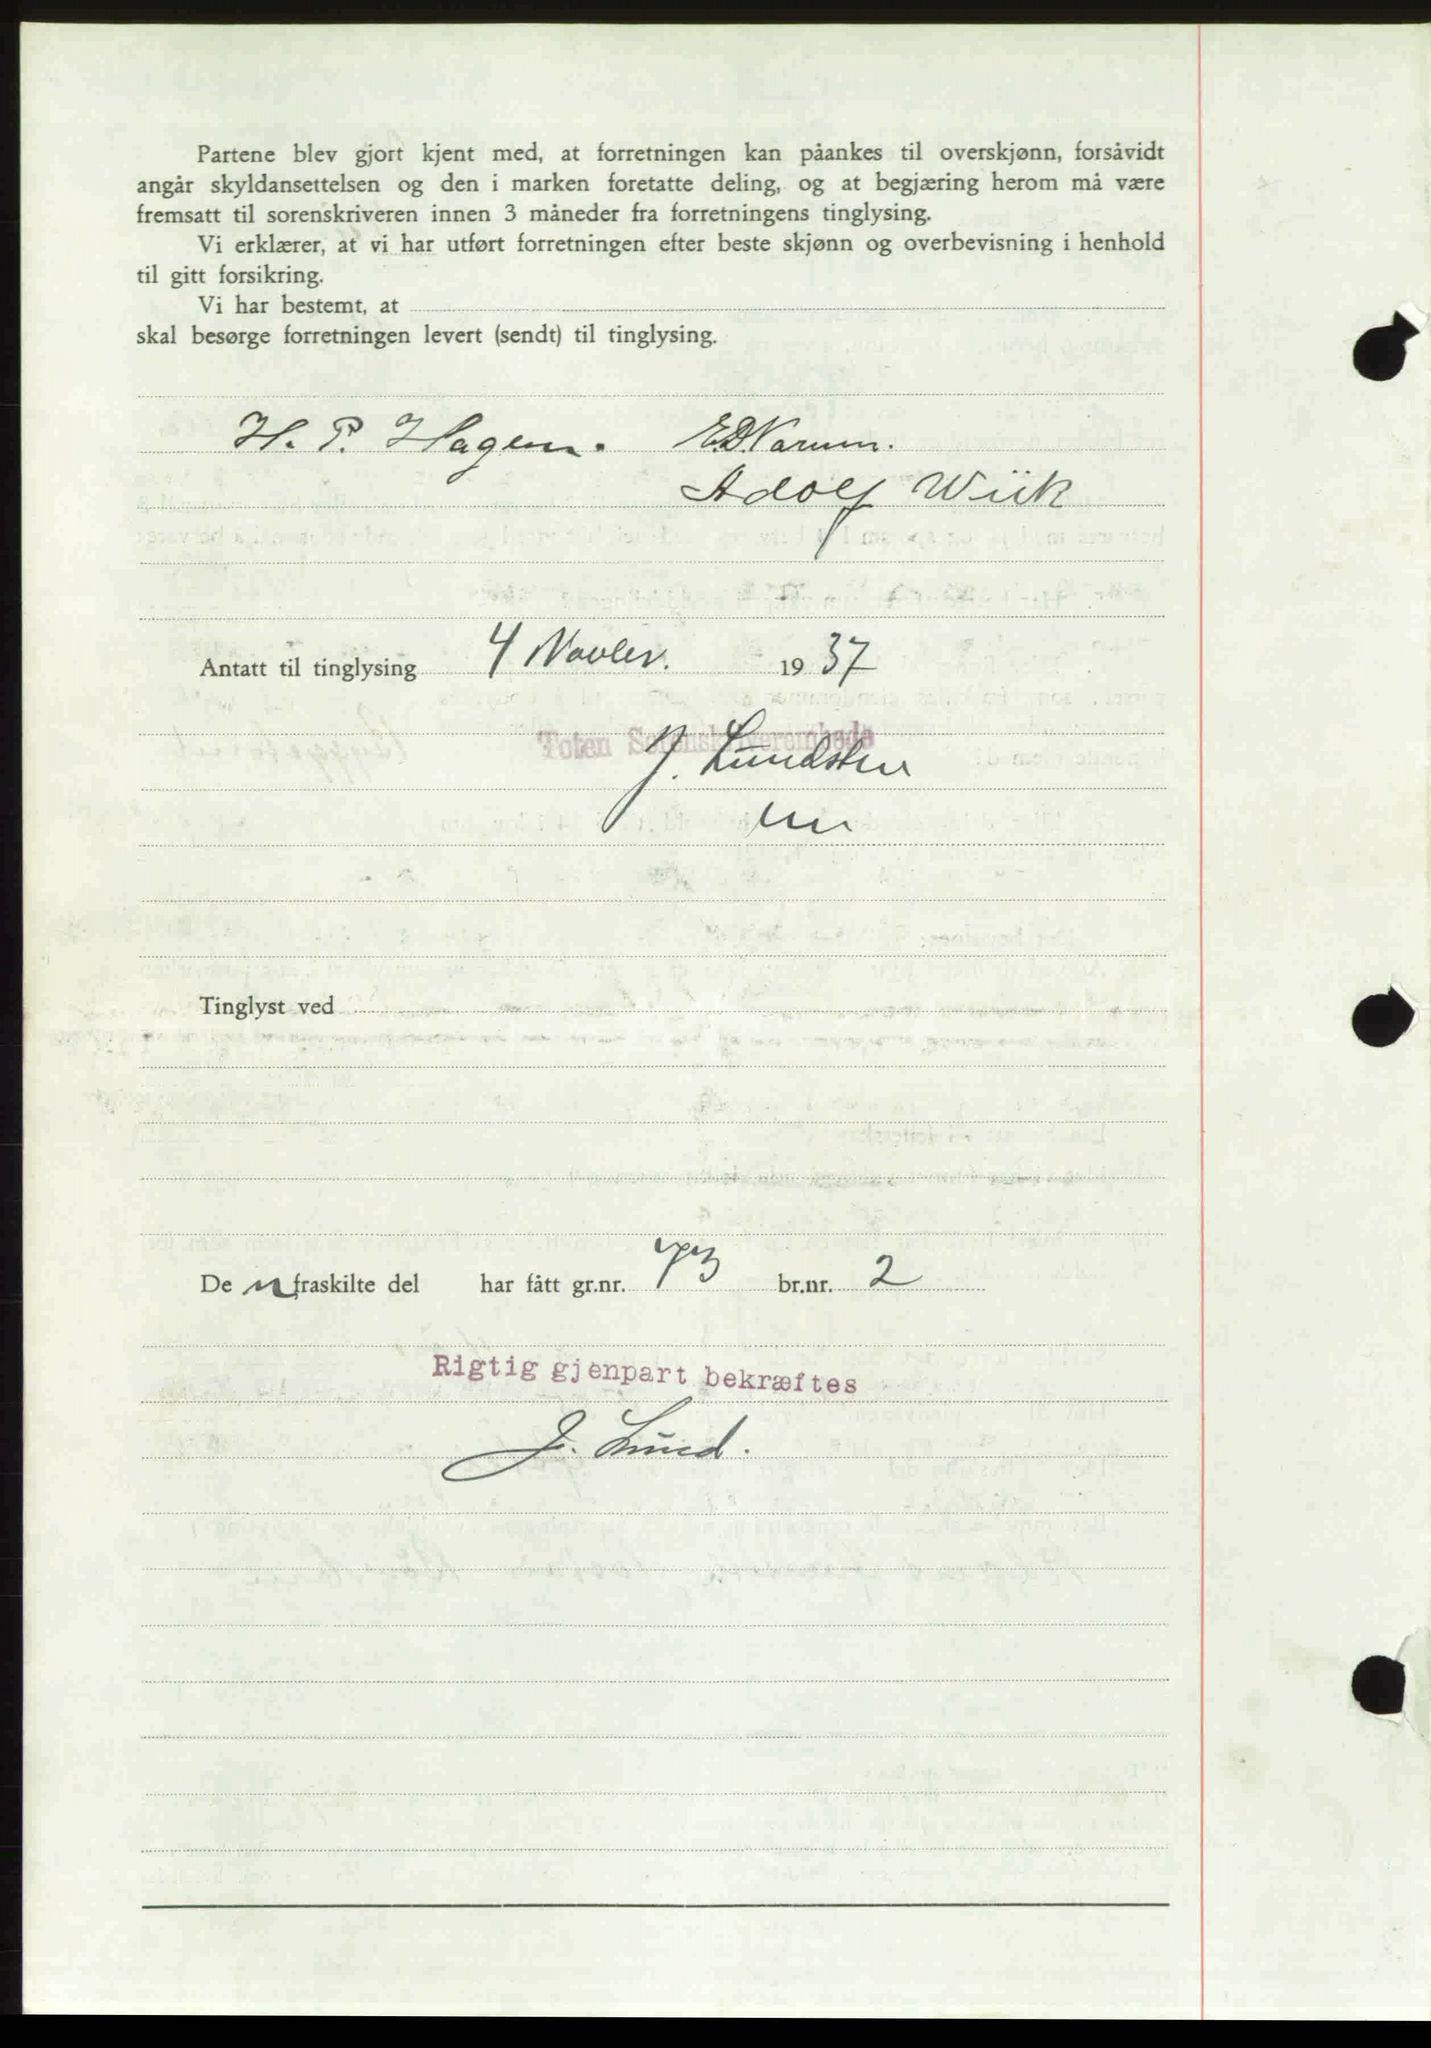 Partene blev gjort kjent med, at forretningen kan påankes til overskjønn, forsåvidt
angår skyldansettelsen og den i marken foretatte deling, og at begjæring herom må være
fremsatt til sorenskriveren innen 3 måneder fra forretningens tinglysing.
Vi erklærer, at vi har utført forretningen efter beste skjønn og overbevisning i henhold
til gitt forsikring.
Vi har bestemt, at
skal besørge forretningen levert (sendt) til tinglysing.
H. P. Hagen. E.D. Narum.
Adolf Wiik
Antatt til tinglysing 4 Novbr. 1937
Toten Sorenskriverembede
J. Lundsten
Tinglyst ved
De n fraskilte del har fått gr.nr. 73 br.nr. 2
Rigtig gjenpart bekræftes
J. Lund.